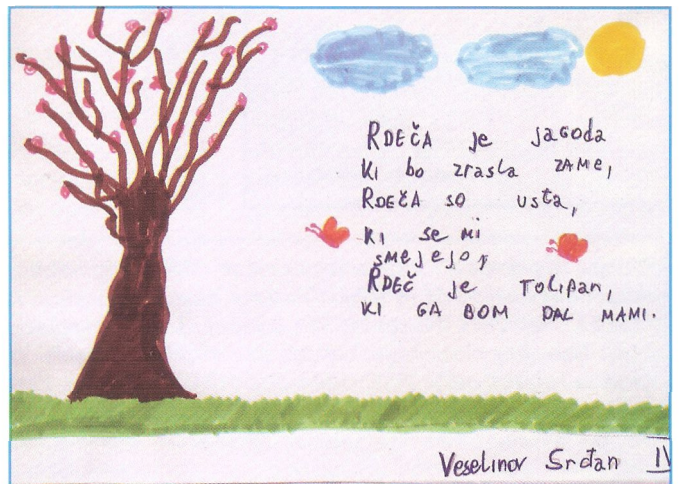 RDEČA je jagoda
KI bo zrasla ZAME,
RDEČA SO usta,
KI se mi
smejejo,
RDEČ je TOLIPAN,
KI GA BOM DAL MAMI.
Veselinov Srđan IV